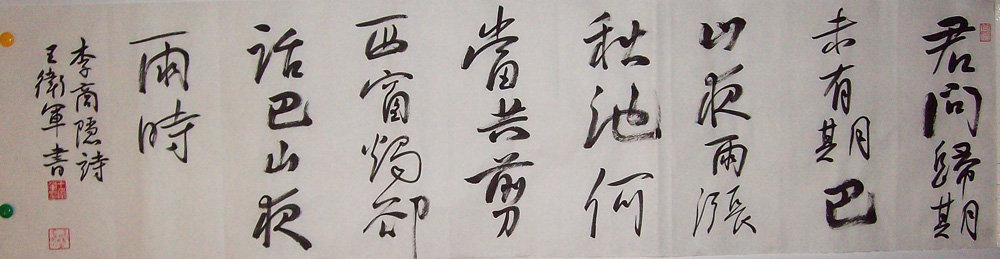 君問歸期
未有期巴
山夜雨漲
秋池何
當共剪
西窗燭卻
話巴山夜
雨時
李商隱詩
王衛軍書